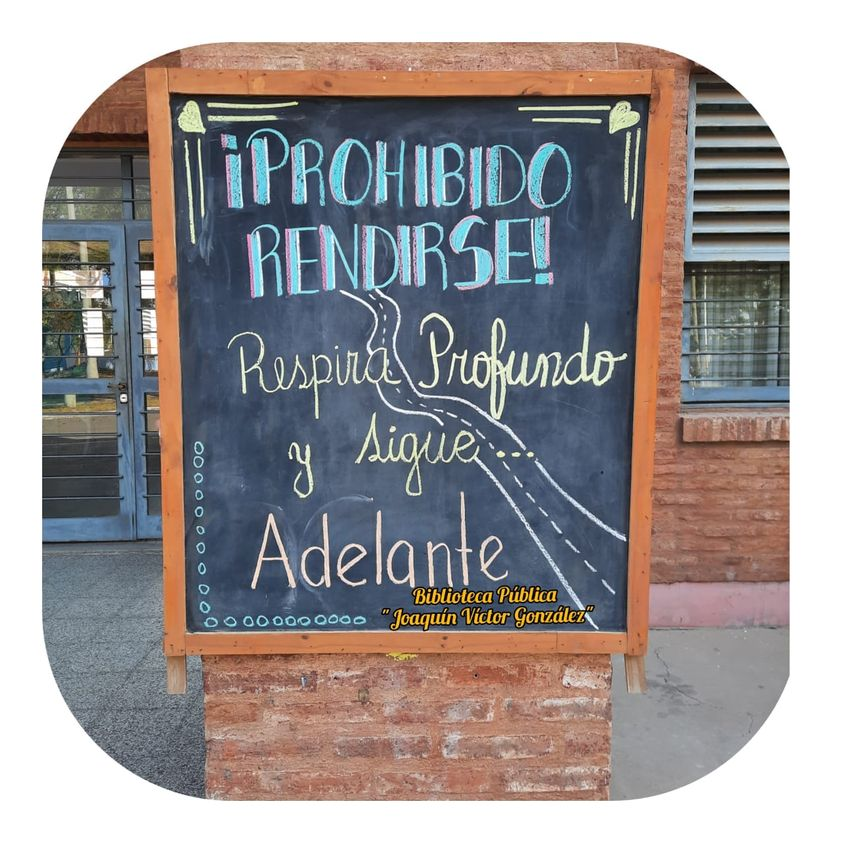 ¡PROHIBIDO
RENDIRSE!
Respira Profundo
y sigue...
Adelante
Biblioteca Pública
"Joaquín Víctor González"